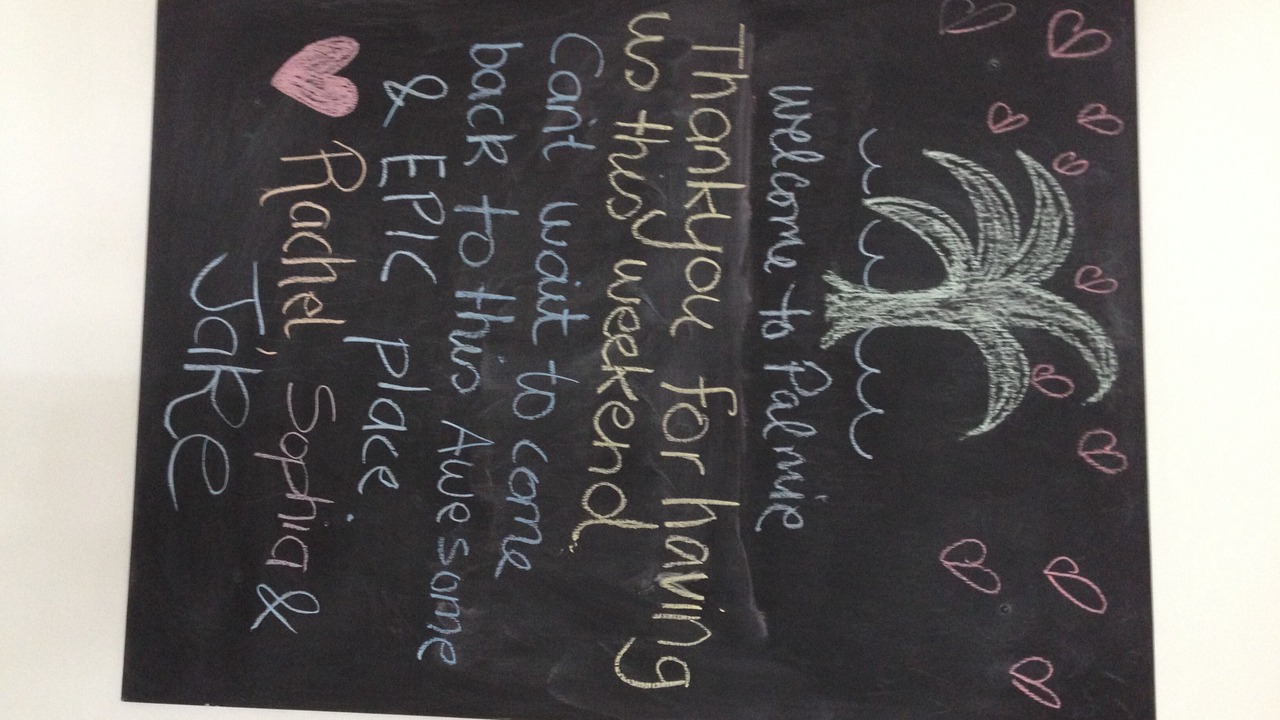 welcome to Palmie
Thankyou for having
us this weekend.
Can't wait to come
back to this Awesome
& EPIC place.
Rachel, Sophia &
JaKe